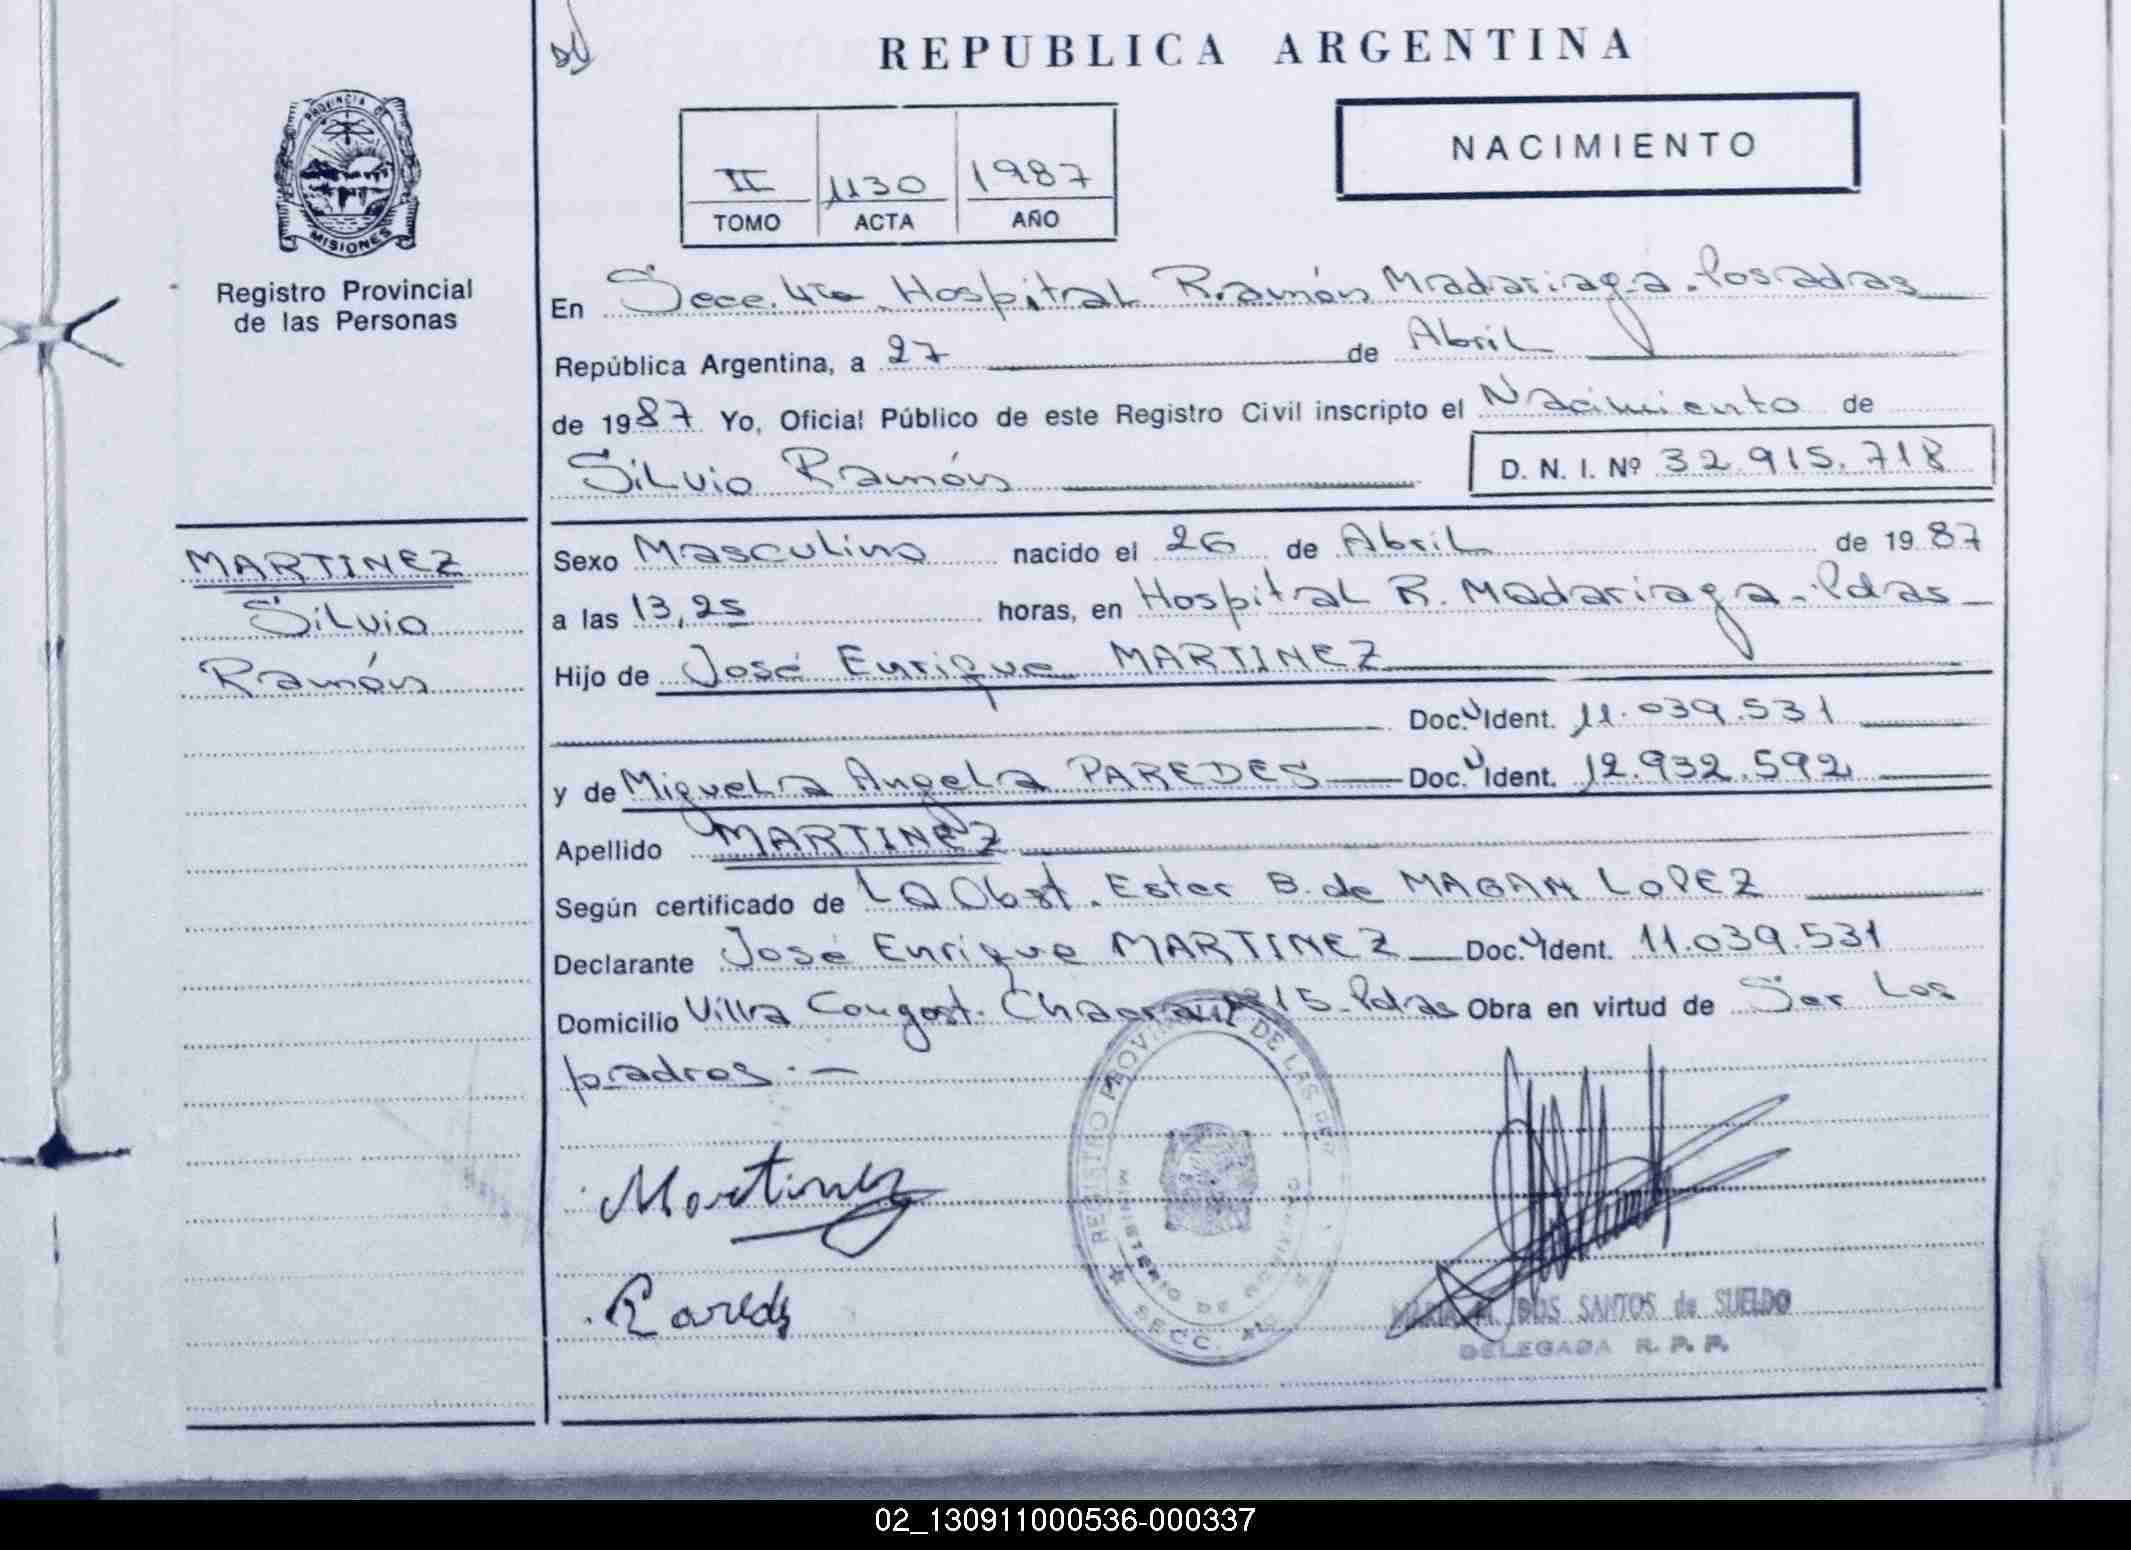 REPUBLICA ARGENTINA
NACIMIENTO
II 1130 1987
TOMO ACTA AÑO
PROVINCIA DE
MISIONES
Registro Provincial
de las Personas
MARTINEZ
Silvio
Ramón
En Secc. 4ta. Hospital Ramón Madariaga. Posadas
República Argentina, a 27 de Abril
de 1987 Yo, Oficial Público de este Registro Civil inscripto el Nacimiento de
Silvio Ramón D. N. I. Nº 32.915.718
Sexo Masculino nacido el 26 de Abril de 1987
a las 13,25 horas, en Hospital R. Madariaga - Pdas
Hijo de José Enrique MARTINEZ
Doc. Ident. 11.039.531
y de Miguela Angela PAREDES Doc. Ident. 12.932.592
Apellido MARTINEZ
Según certificado de La Obst. Ester B. de MAGAN LOPEZ
Declarante José Enrique MARTINEZ Doc. Ident. 11.039.531
Domicilio Villa Chacra 15 - Pdas Obra en virtud de Ser Los
padres. —
Martinez
REGISTRO PROVINCIAL DE LAS
MINISTERIO DE
SECC.
Paredes
DOS SANTOS de SUELDO
DELEGADA R. P. P.
02_130911000536-000337